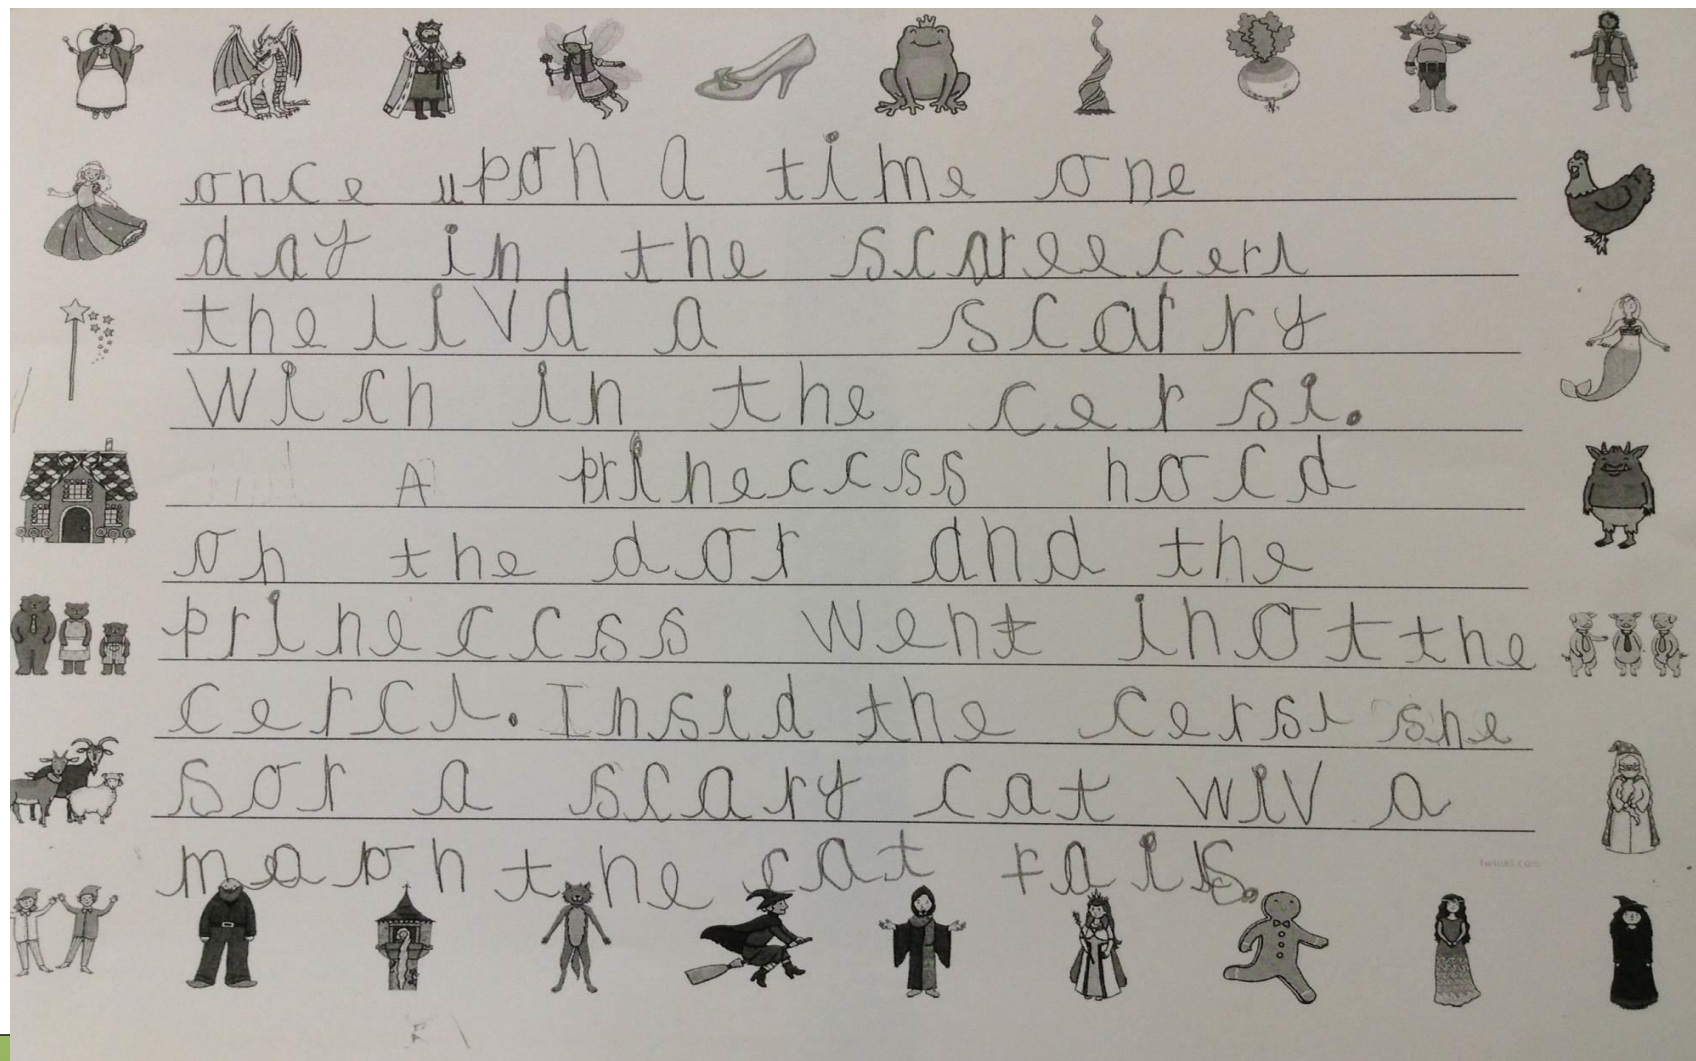 once upon a time one
day in the scareecerl
thelivd a scarry
wich in the cersl.
A prineccss nocd
on the dor and the
prineccss went inot the
cercl. Insid the cersl she
sor a scary cat wiv a
maon the cat rals.
twinkl.com